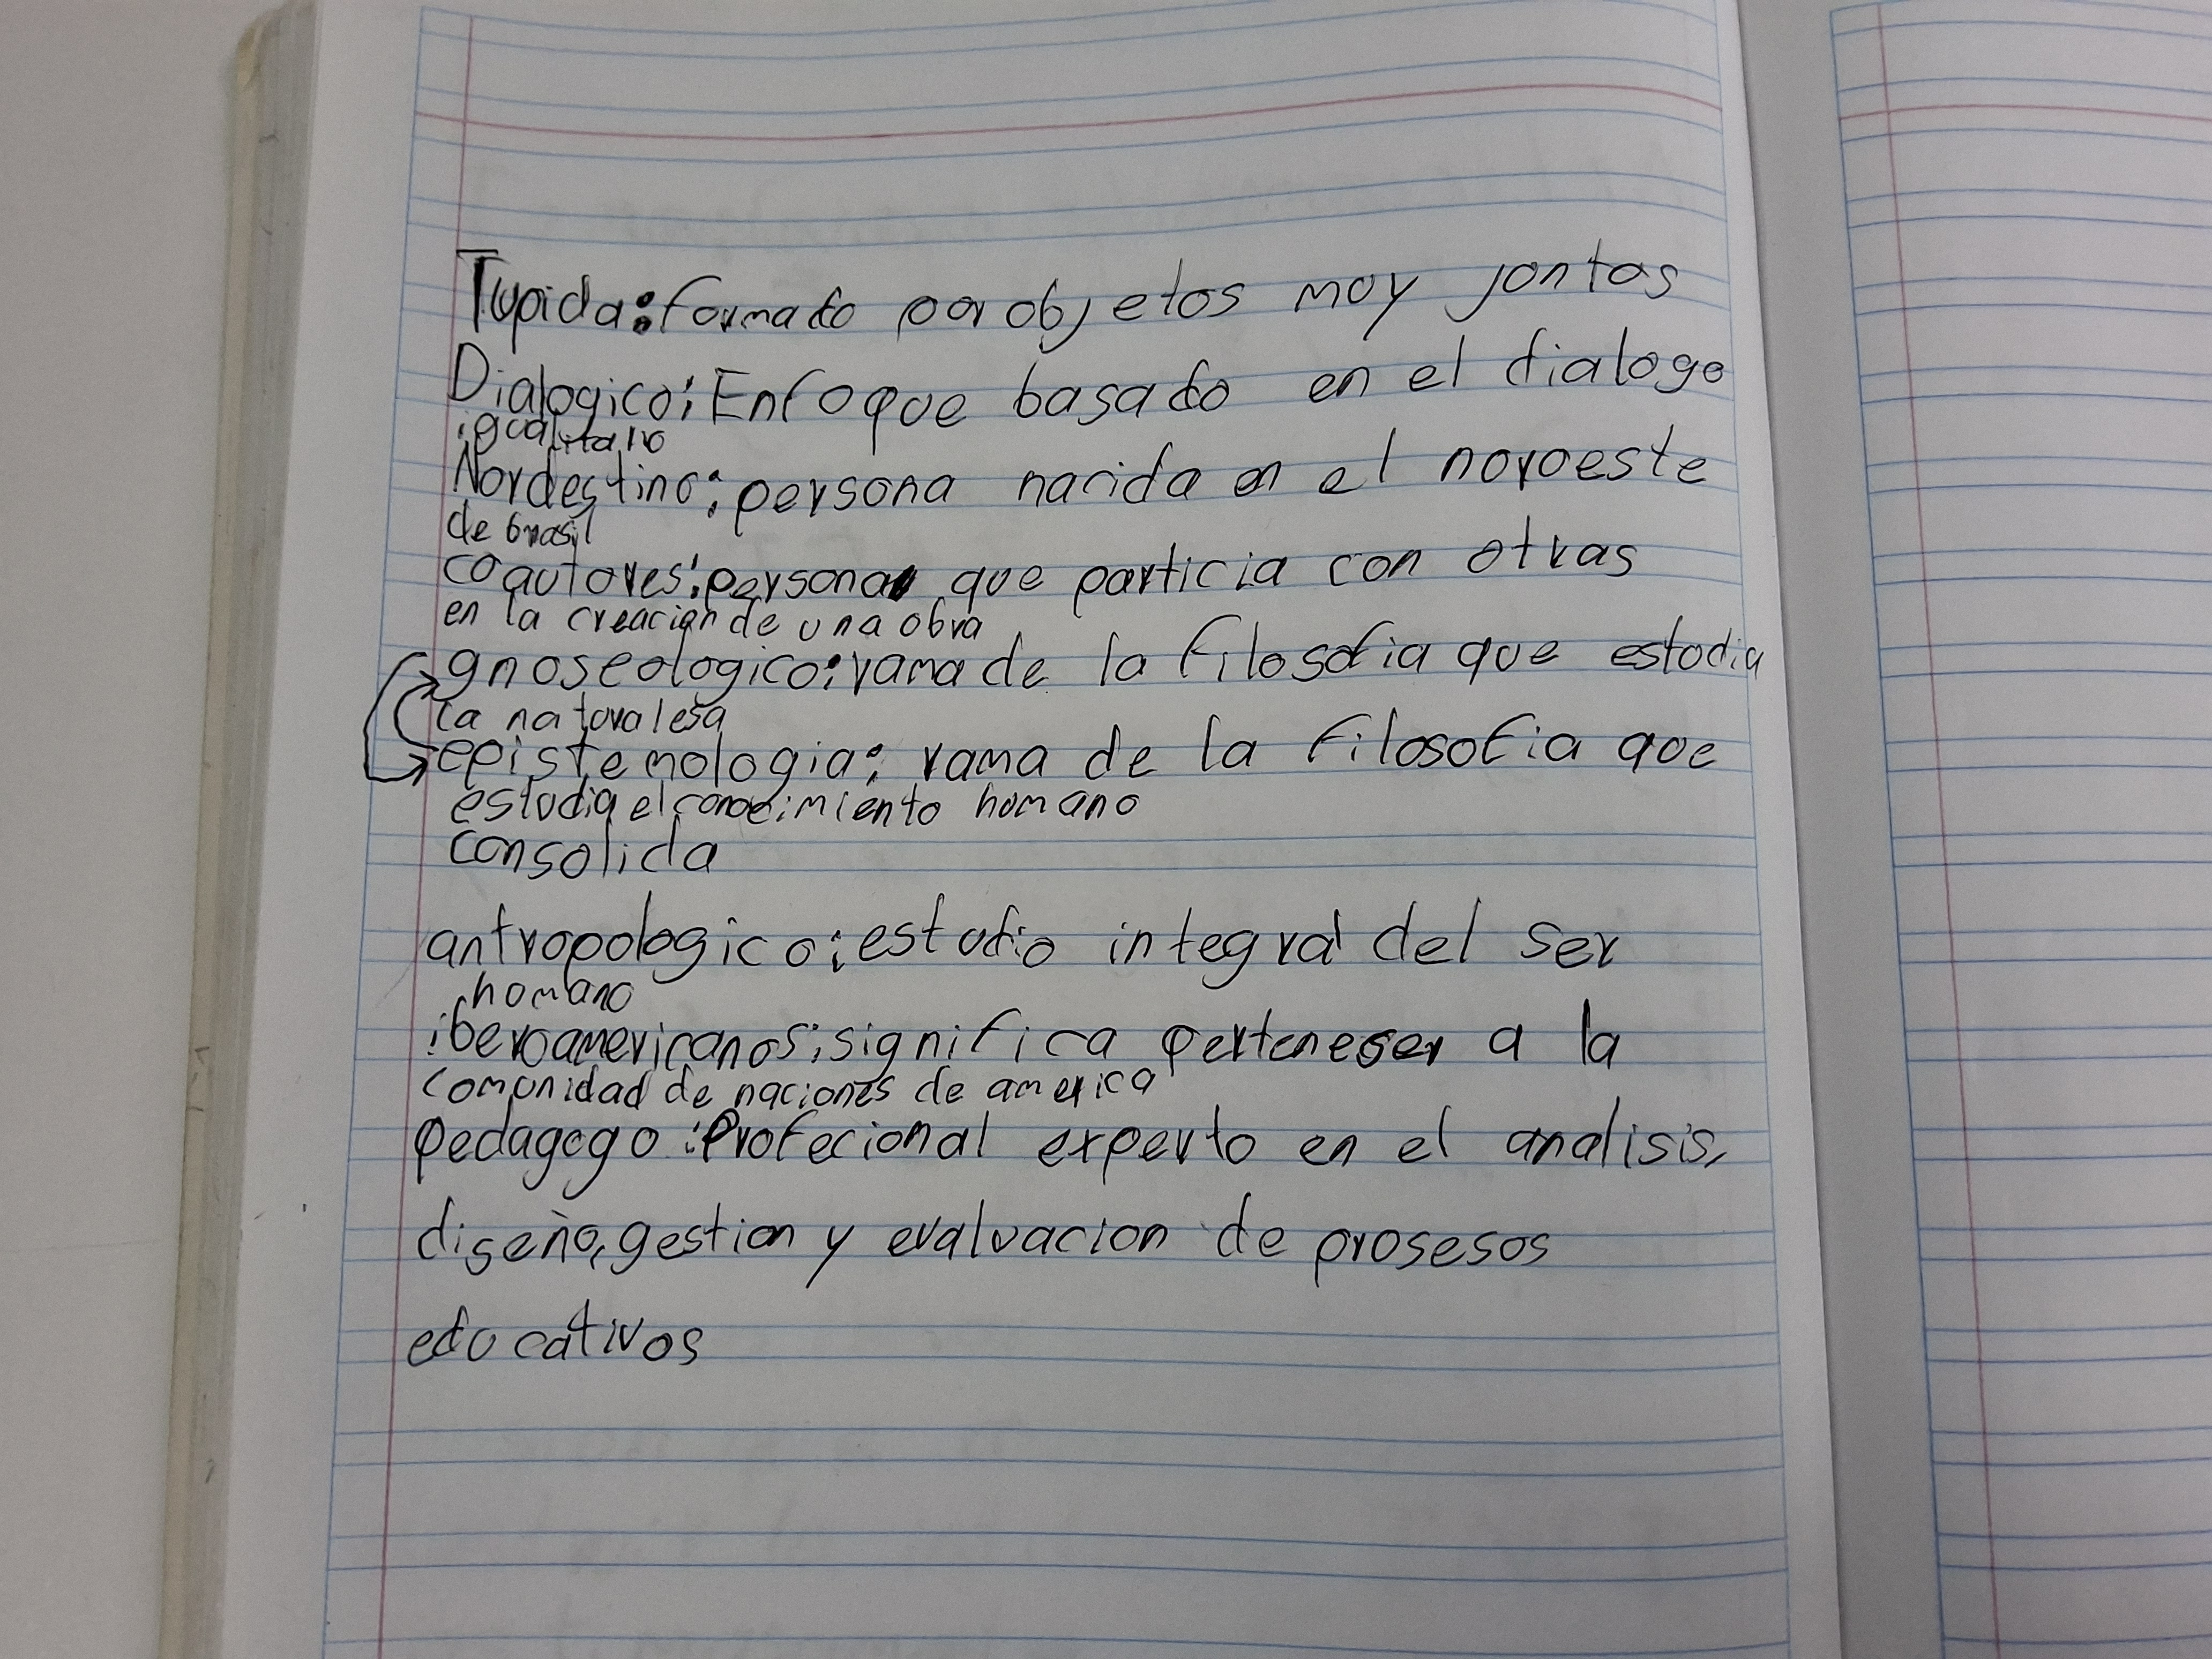 Tupida: formado por objetos muy juntos
Dialogico: Enfoque basado en el dialogo
igualitario
Nordestino: persona nacida en el noroeste
de brasil
coautores: persona que particia con otras
en la creacion de una obra
gnoseologico: rama de la filosofia que estudia
la naturalesa
epistemologia: rama de la filosofia que
estudia el conocimiento humano
consolida
antropologico: estudio integral del ser
humano
iberoamericanos: significa perteneser a la
comunidad de naciones de america
pedagogo: Profecional experto en el analisis,
diseño, gestion y evaluacion de prosesos
educativos